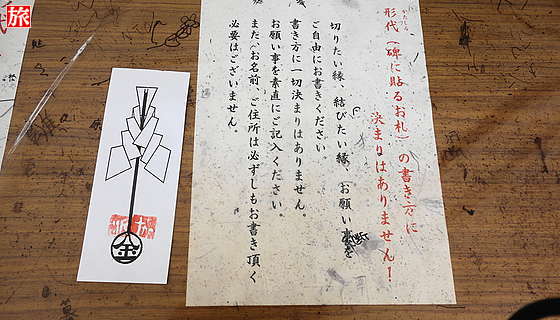 旅
形代（碑に貼るお札）の書き方に
決まりはありません！
切りたい縁、結びたい縁、（お願い事を
ご自由にお書きください。
書き方に一切決まりはありません。
お願い事を素直にご記入ください。
また、お名前、ご住所は必ずしもお書き頂く
必要はございません。
金